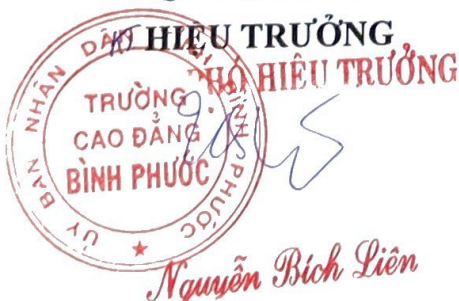 KT HIỆU TRƯỞNG
PHÓ HIỆU TRƯỞNG
ỦY BAN NHÂN DÂN TỈNH BÌNH PHƯỚC
TRƯỜNG
CAO ĐẲNG
BÌNH PHƯỚC
Nguyễn Bích Liên